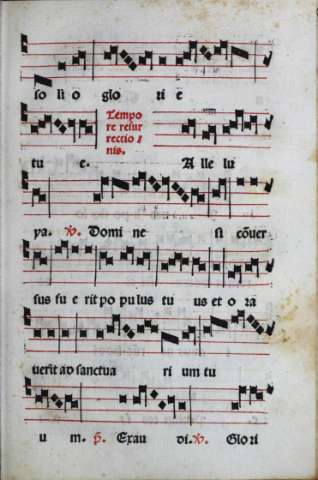 so li o glo ri e
Tempo
re resur
rectio⸗
nis.
tu e. A lle lu
ya. ℣. Domi ne si cõuer
sus fu e rit po pu lus tu us et o ra
uerit ad sanctua ri um tu
u m. p̃. Exau di. ℣. Glo ri